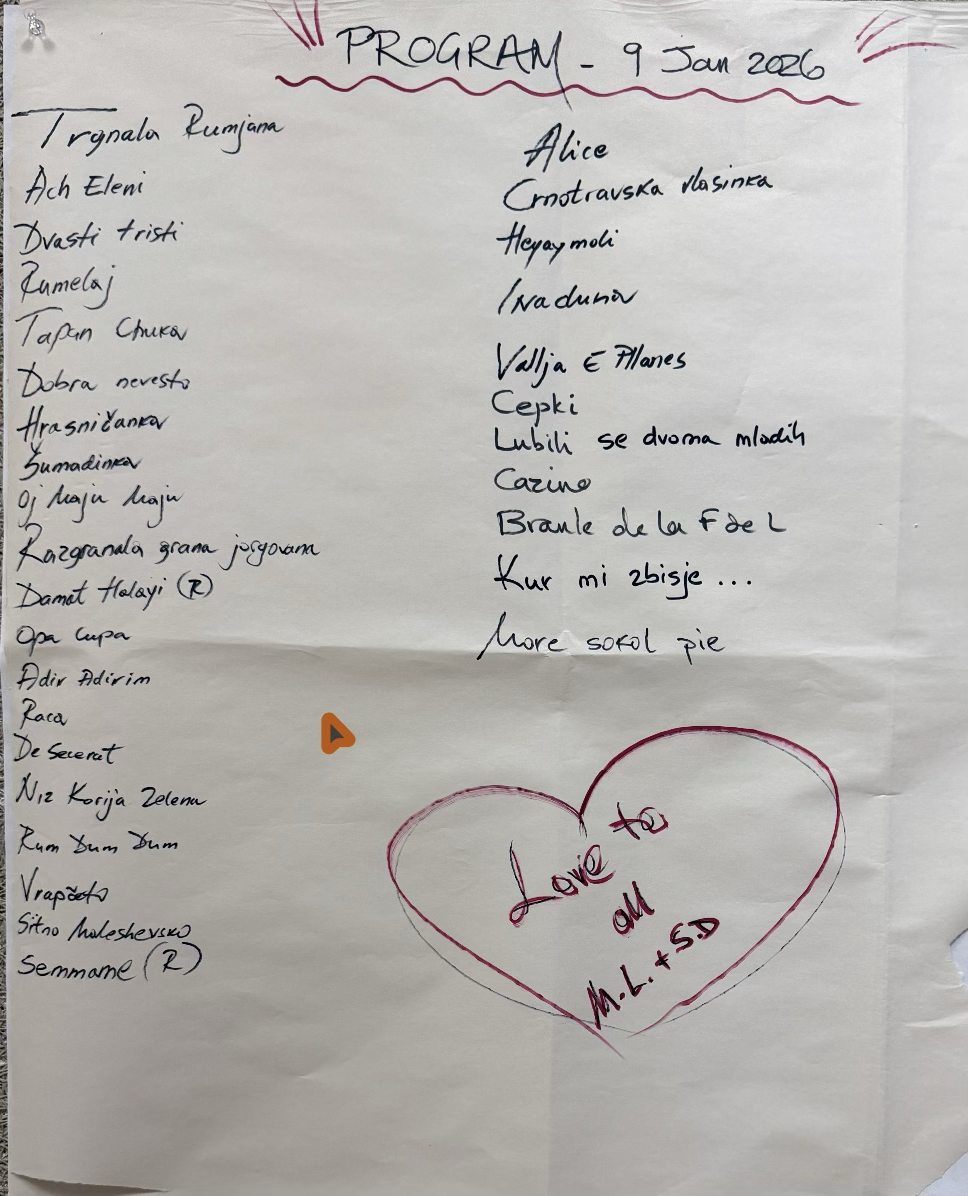 PROGRAM - 9 Jan 2026
Trgnala Rumjana
Ach Eleni
Dvasti tristi
Rumelaj
Tapan Chuka
Dobra nevesto
Hrasničanka
Šumadinka
Oj Maju Maju
Razgranala grana jorgovana
Damat Halayi (R)
Opa Cupa
Adir Adirim
Raca
De secerat
Niz Korija Zelena
Rum Dum Dum
Vrapčeto
Sitno Maleshevsko
Semmame (R)
Alice
Crnotravska vlasinka
Heyaymoli
Inaduna
Vallja E Pllanes
Cepki
Lubili se dvoma mladih
Cazino
Branle de la F de L
Kur mi zbisje ...
More sokol pie
Love to
all
M.L. + S.D